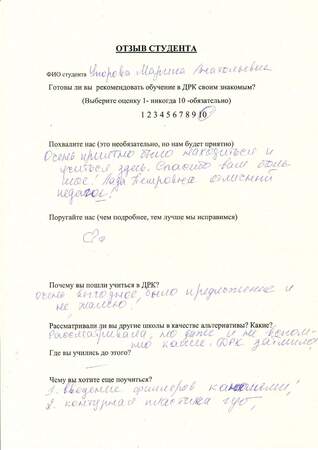 ОТЗЫВ СТУДЕНТА
ФИО студента Упорова Марина Анатольевна
Готовы ли вы рекомендовать обучение в ДРК своим знакомым?
(Выберите оценку 1- никогда 10 -обязательно)
1 2 3 4 5 6 7 8 9 10
Похвалите нас (это необязательно, но нам будет приятно)
Очень приятно было находиться и
учиться здесь. Спасибо вам боль
шое! Лада Петровна отличный
педагог!
Поругайте нас (чем подробнее, тем лучше мы исправимся)
Почему вы пошли учиться в ДРК?
Очень выгодное было предложение и
не жалею!
Рассматривали ли вы другие школы в качестве альтернативы? Какие?
Рассматривала, но даже и не вспом-
ню какие. ДРК затмило
Где вы учились до этого?
Чему вы хотите еще поучиться?
1. Введение филлеров канюлями!
2. контурная пластика губ,